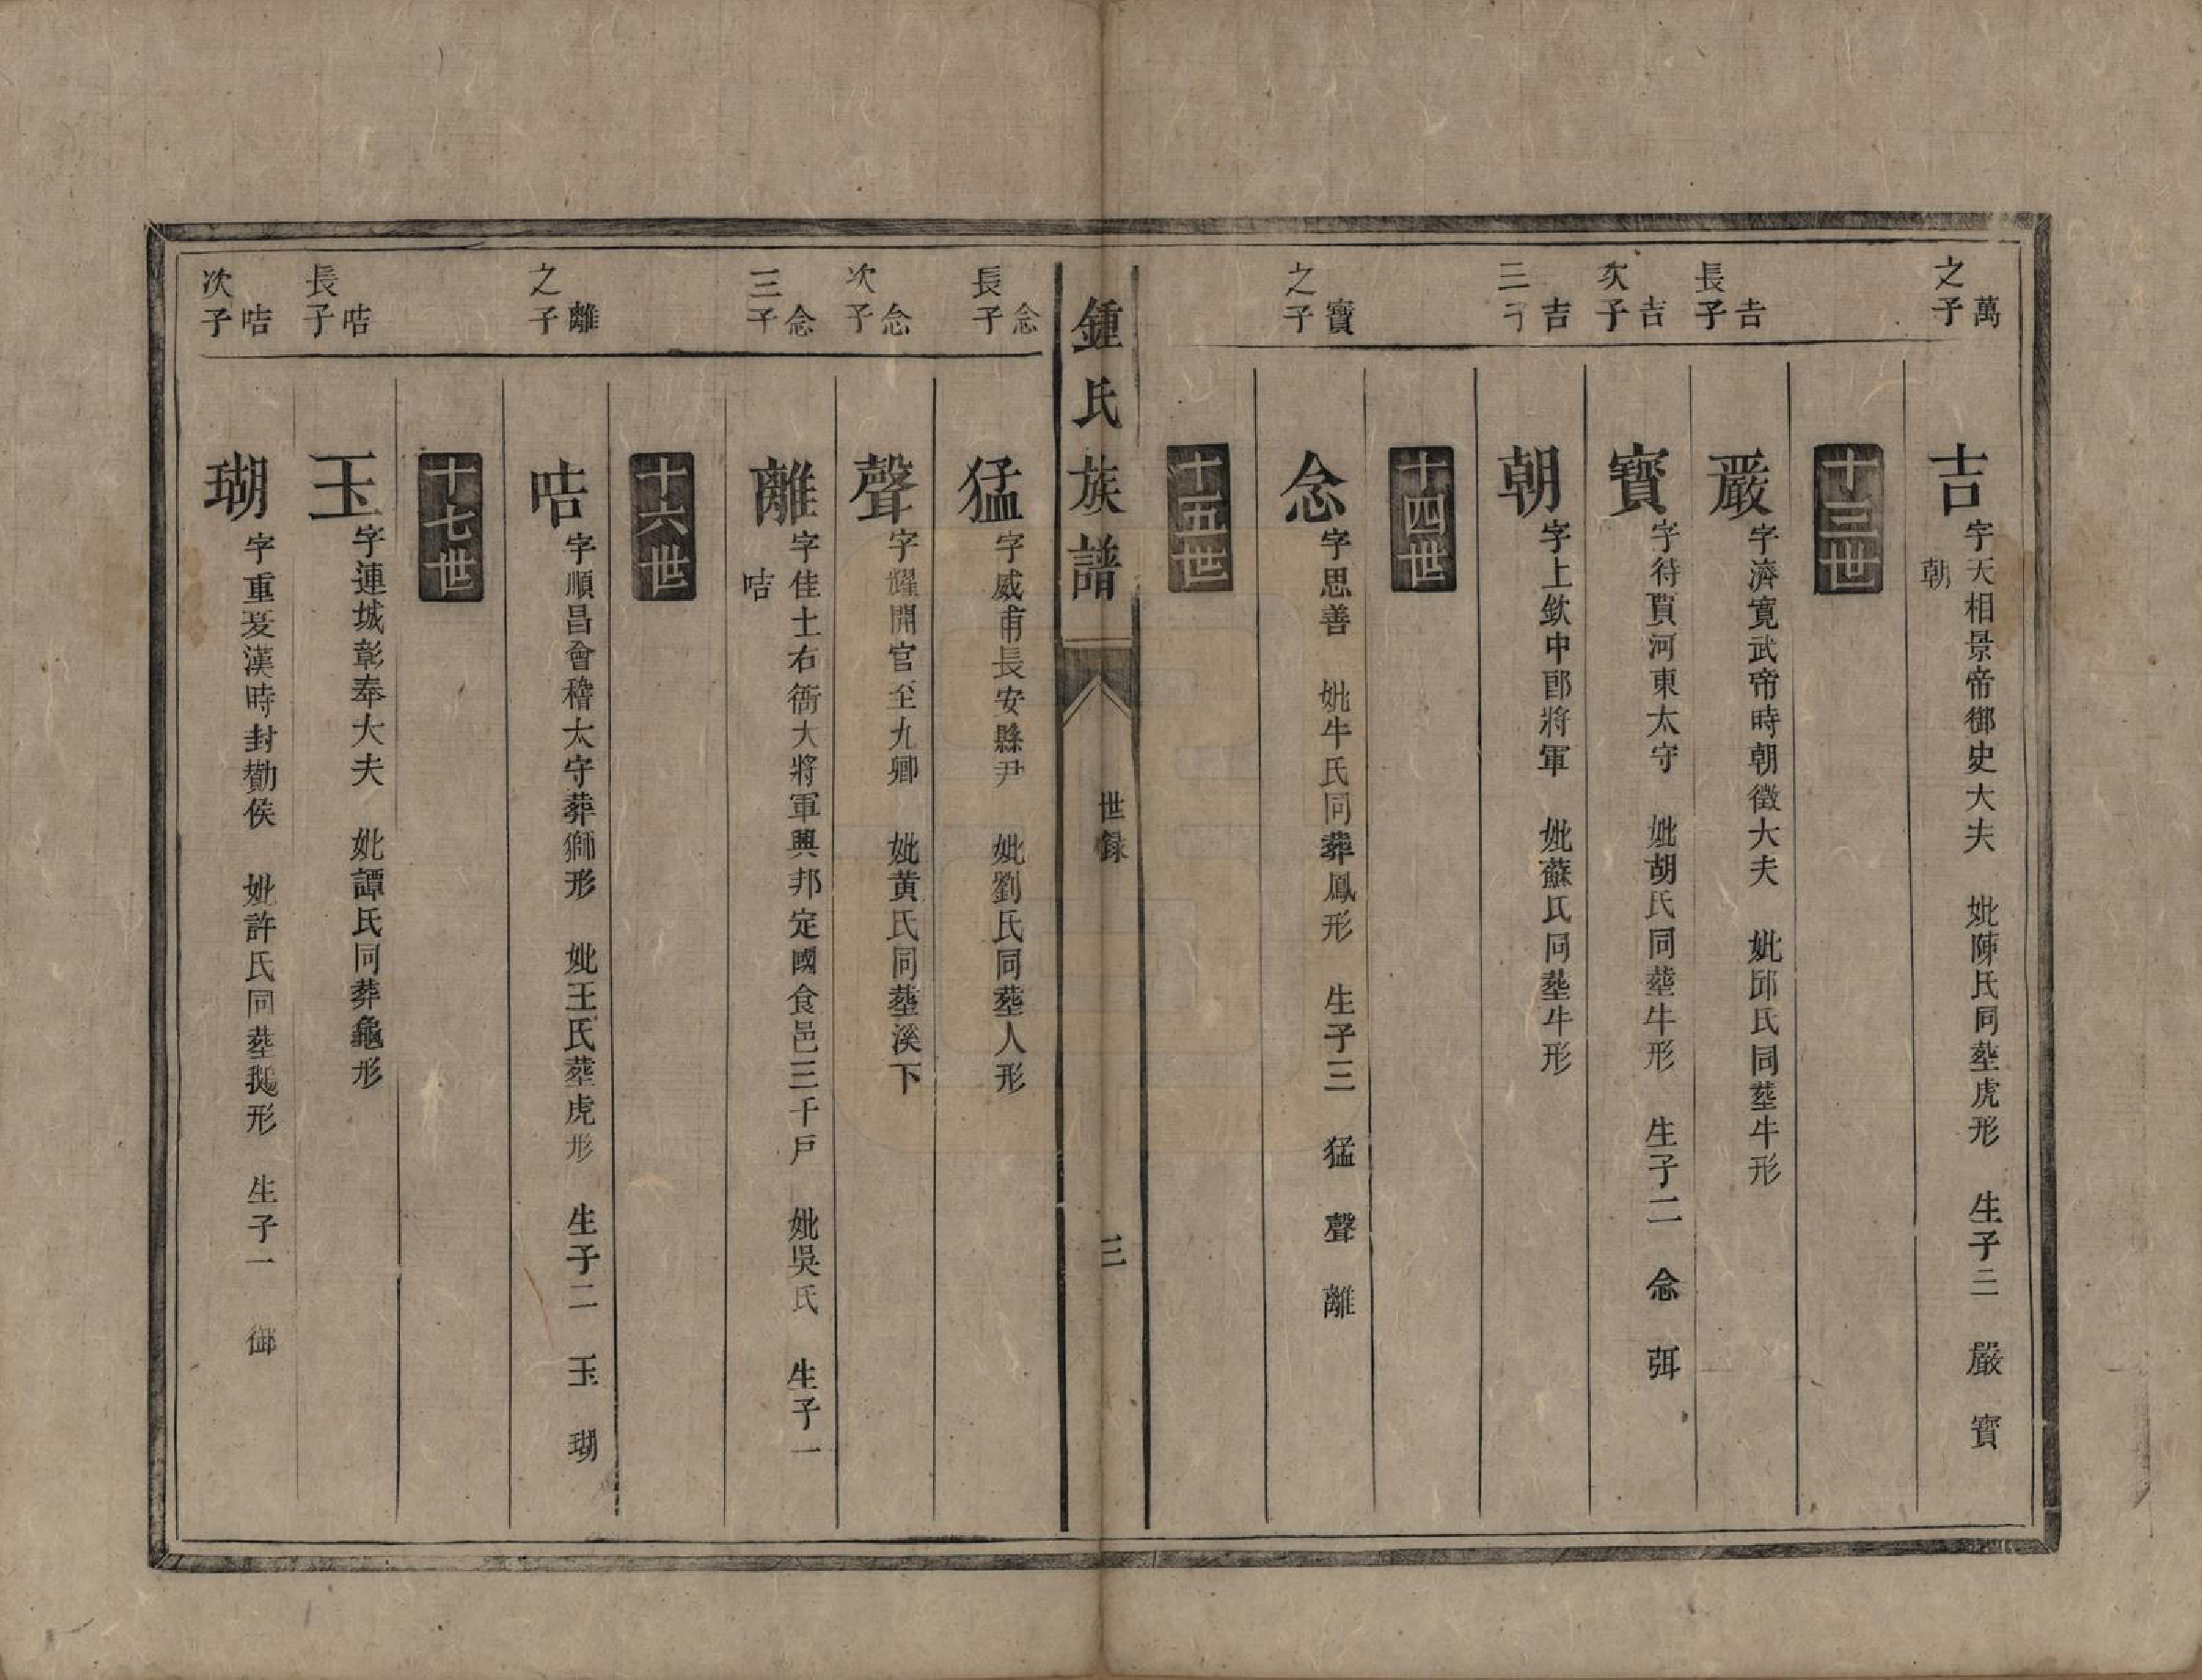 萬
之子
吉
字天相景帝御史大夫　妣陳氏同塟虎形　生子三　嚴　寶
朝
十三世
吉
長子
嚴
字濟寬武帝時朝徵大夫　妣邱氏同塟牛形
吉
次子
寶
字待賈河東太守　妣胡氏同塟牛形　生子二　念　弭
吉
三子
朝
字上欽中郎將軍　妣蘇氏同塟牛形
十四世
寶
之子
念
字思善　妣牛氏同葬鳳形　生子三　猛　聲　離
十五世
鍾氏族譜　世録　三
念
長子
猛
字威甫長安縣尹　妣劉氏同塟人形
念
次子
聲
字耀開官至九卿　妣黄氏同塟溪下
念
三子
離
字佳土右衞大將軍興邦定國食邑三千戶　妣吳氏　生子一
咭
十六世
離
之子
咭
字順昌會稽太守葬獅形　妣王氏塟虎形　生子二　玉　瑚
十七世
咭
長子
玉
字連城彰奉大夫　妣譚氏同葬龜形
咭
次子
瑚
字重夌漢時封勸侯　妣許氏同塟形　生子一　御